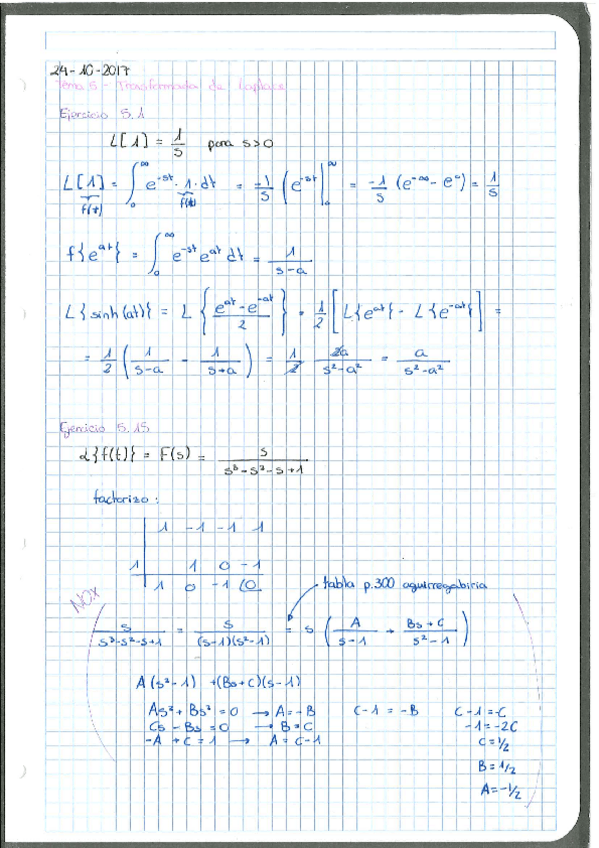 24-10-2017
Tema 5 - Transformada de Laplace
Ejercicio 5.1
L[1] = 1/s para s>0
L[1] = ∫₀^∞ e^-st · 1 · dt = -1/s (e^-st |₀^∞ = -1/s (e^-∞ - e^0) = 1/s
f(t) f(t)
f{e^at} = ∫₀^∞ e^-st e^at dt = 1/(s-a)
L{sinh(at)} = L{(e^at - e^-at)/2} = 1/2 [L{e^at} - L{e^-at}] =
= 1/2 (1/(s-a) - 1/(s+a)) = 1/2 2a/(s²-a²) = a/(s²-a²)
Ejercicio 5.15
L{f(t)} = F(s) = s/(s³-s²-s+1)
factorizo:
1 -1 -1 1
1 1 0 -1
1 0 -1 (0
tabla p.300 aguirregabiria
NO X
s/(s³-s²-s+1) = s/((s-1)(s²-1)) = s (A/(s-1) + (Bs+C)/(s²-1))
A(s²-1) + (Bs+C)(s-1)
As² + Bs² = 0 → A = -B C-1 = -B C-1 = -C
Cs - Bs = 0 → B = C -1 = -2C
-A + C = 1 → A = C-1 C = 1/2
B = 1/2
A = -1/2